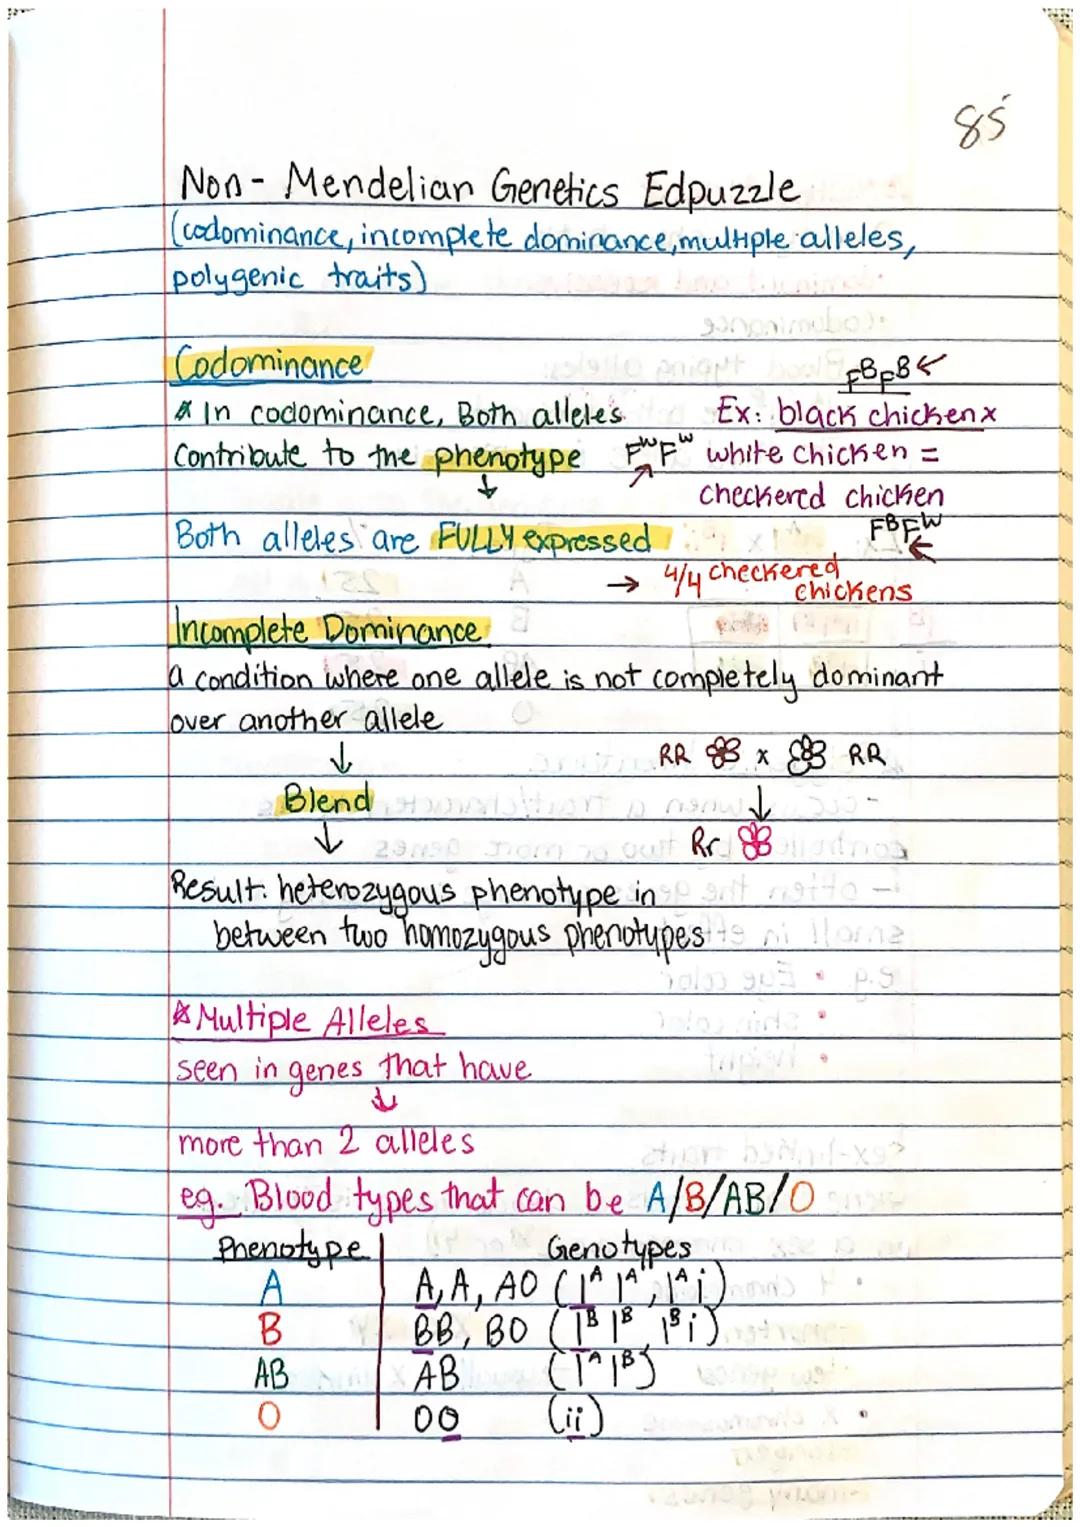 85
Non-Mendelian Genetics Edpuzzle
(codominance, incomplete dominance, multiple alleles,
polygenic traits)
Codominance
F^B F^B
* In codominance, Both alleles
Ex: black chicken x
Contribute to the phenotype
F^W F^W white chicken =
checkered chicken
Both alleles are FULLY expressed
F^B F^W
→ 4/4 checkered
chickens
Incomplete Dominance
a condition where one allele is not completely dominant
over another allele
↓
RR x RR
Blend
↓
↓
Rr
Result: heterozygous phenotype in
between two homozygous phenotypes
* Multiple Alleles
seen in genes that have
↓
more than 2 alleles
eg. Blood types that can be A/B/AB/O
Phenotype | Genotypes
A A,A, AO (I^A I^A, I^A i)
B BB, BO (I^B I^B, I^B i)
AB AB (I^A I^B)
O OO (ii)